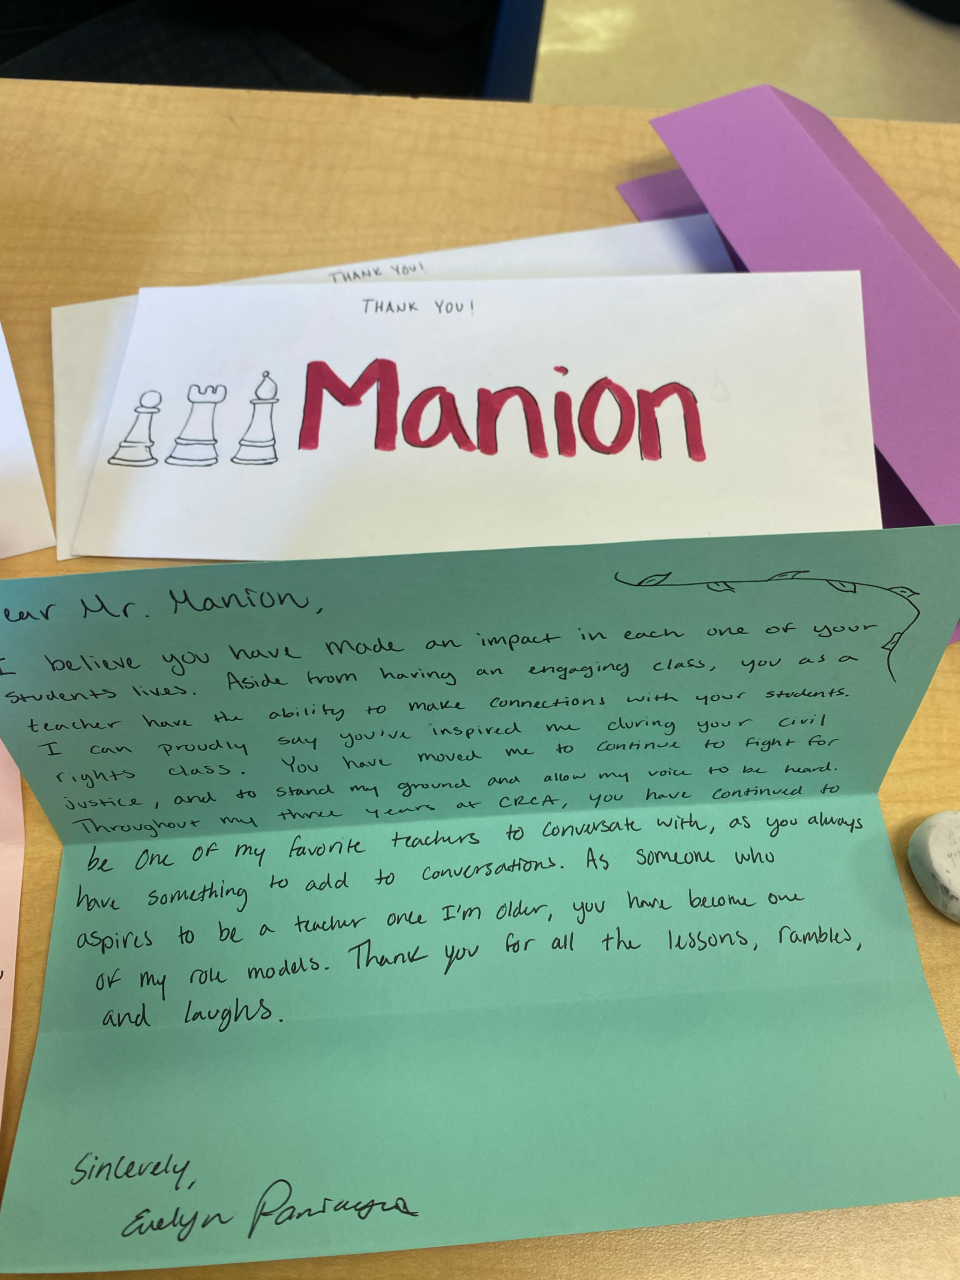 THANK YOU!
THANK YOU!
Manion
ear Mr. Manion,
I believe you have made an impact in each one of your
students lives. Aside from having an engaging class, you as a
teacher have the ability to make connections with your students.
I can proudly say you've inspired me during your civil
rights class. You have moved me to continue to fight for
justice, and to stand my ground and allow my voice to be heard.
Throughout my three years at CRCA, you have continued to
be one of my favorite teachers to conversate with, as you always
have something to add to conversations. As someone who
aspires to be a teacher once I'm older, you have become one
of my role models. Thank you for all the lessons, rambles,
and laughs.
Sincerely,
Evelyn